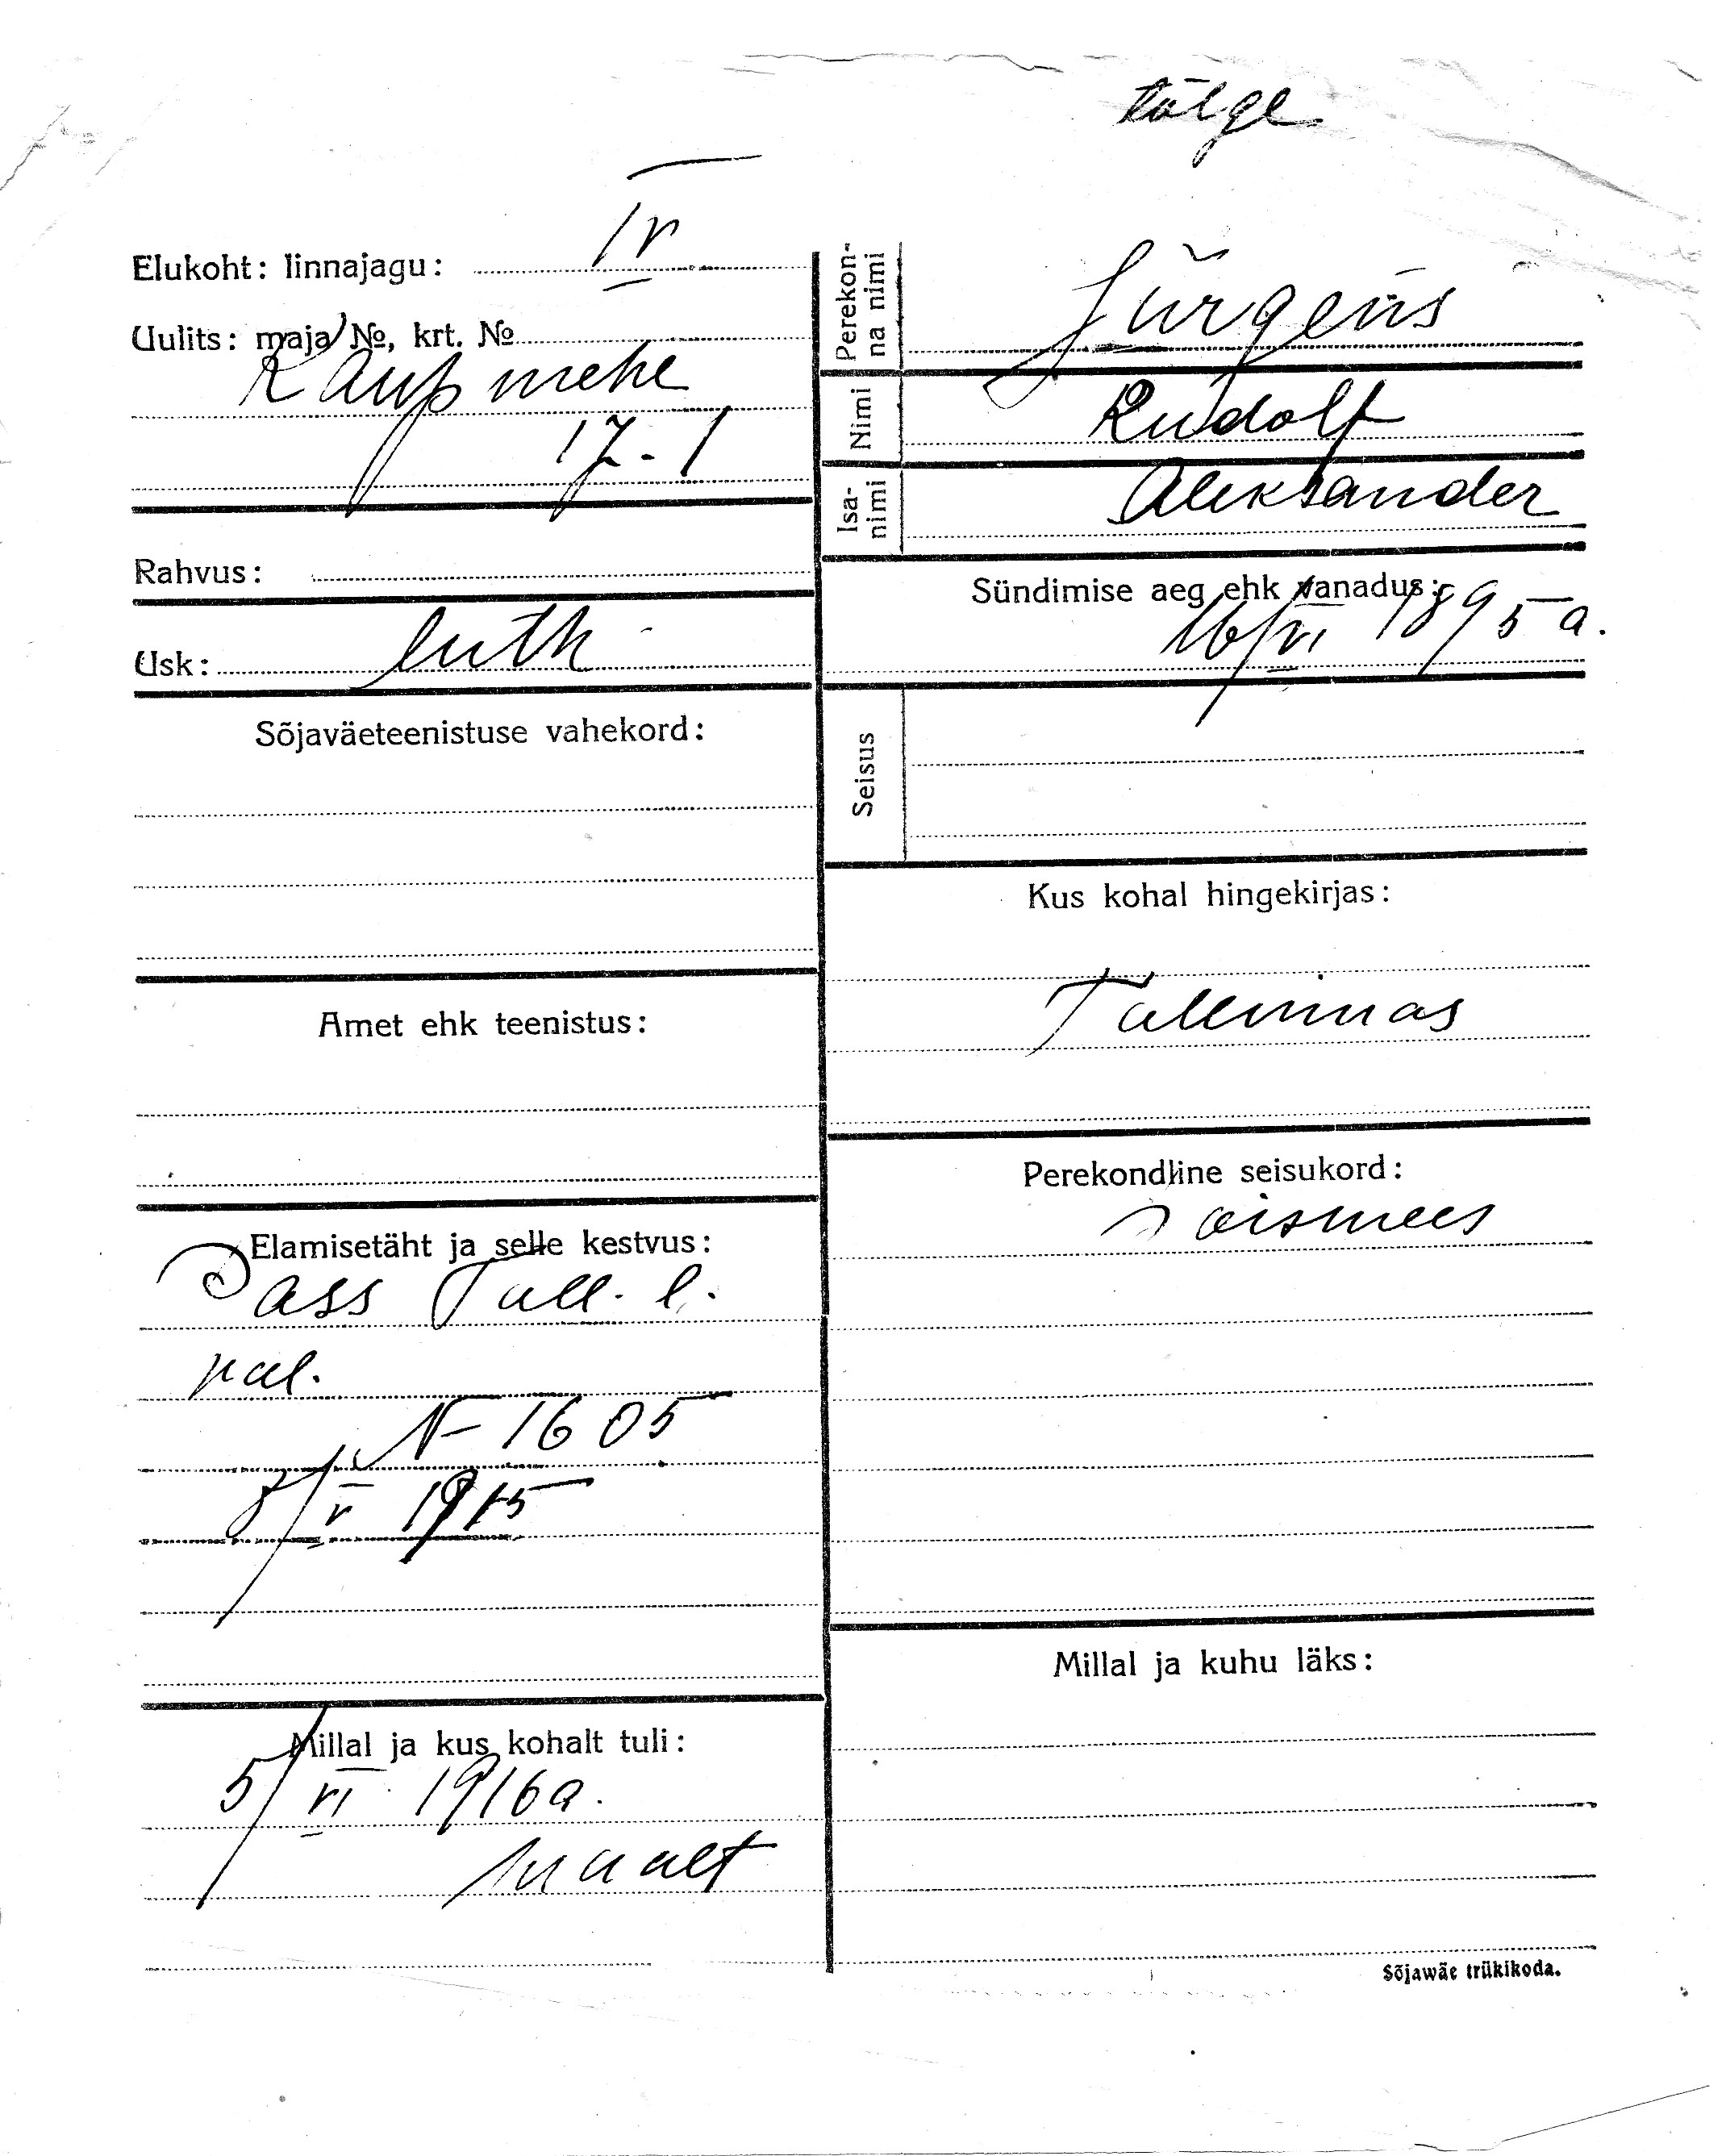 tõlge
Elukoht: linnajagu: IV
Uulits: maja №, krt. №
Kaupmehe
17-1
Rahvus:
Usk: luth
Sõjaväeteenistuse vahekord:
Amet ehk teenistus:
Elamisetäht ja selle kestvus:
Pass Tall. l.
val.
N 1605
8/V 1915
Millal ja kus kohalt tuli:
5/VI 1916 a.
maalt
Perekonna nimi Jürgens
Nimi Rudolf
Isanimi Aleksander
Sündimise aeg ehk vanadus:
16/VI 1895 a.
Seisus
Kus kohal hingekirjas:
Tallinnas
Perekondline seisukord:
Poismees
Millal ja kuhu läks:
Sõjawäe trükikoda.